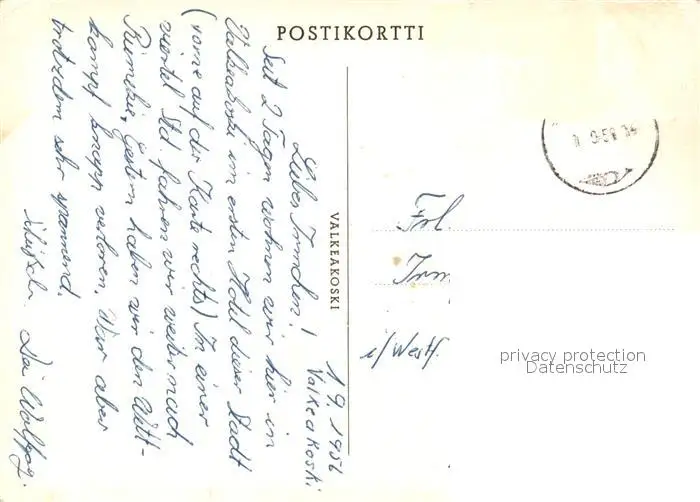 POSTIKORTTI
VALKEAKOSKI
1 9. 1956
Valkeakoski
Liebes Irmchen!
Seit 2 Tagen wohnen wir hier in
Valkeakoski im ersten Hotel dieser Stadt
(vorne auf der Karte rechts) In einer
viertel Std. fahren wir weiter nach
Gestern haben wir den Wett-
kampf knapp verloren. War aber
trotzdem sehr spannend.
Dein Wolfgang.
Frl.
Irm
i/Westf.
privacy protection
Datenschutz